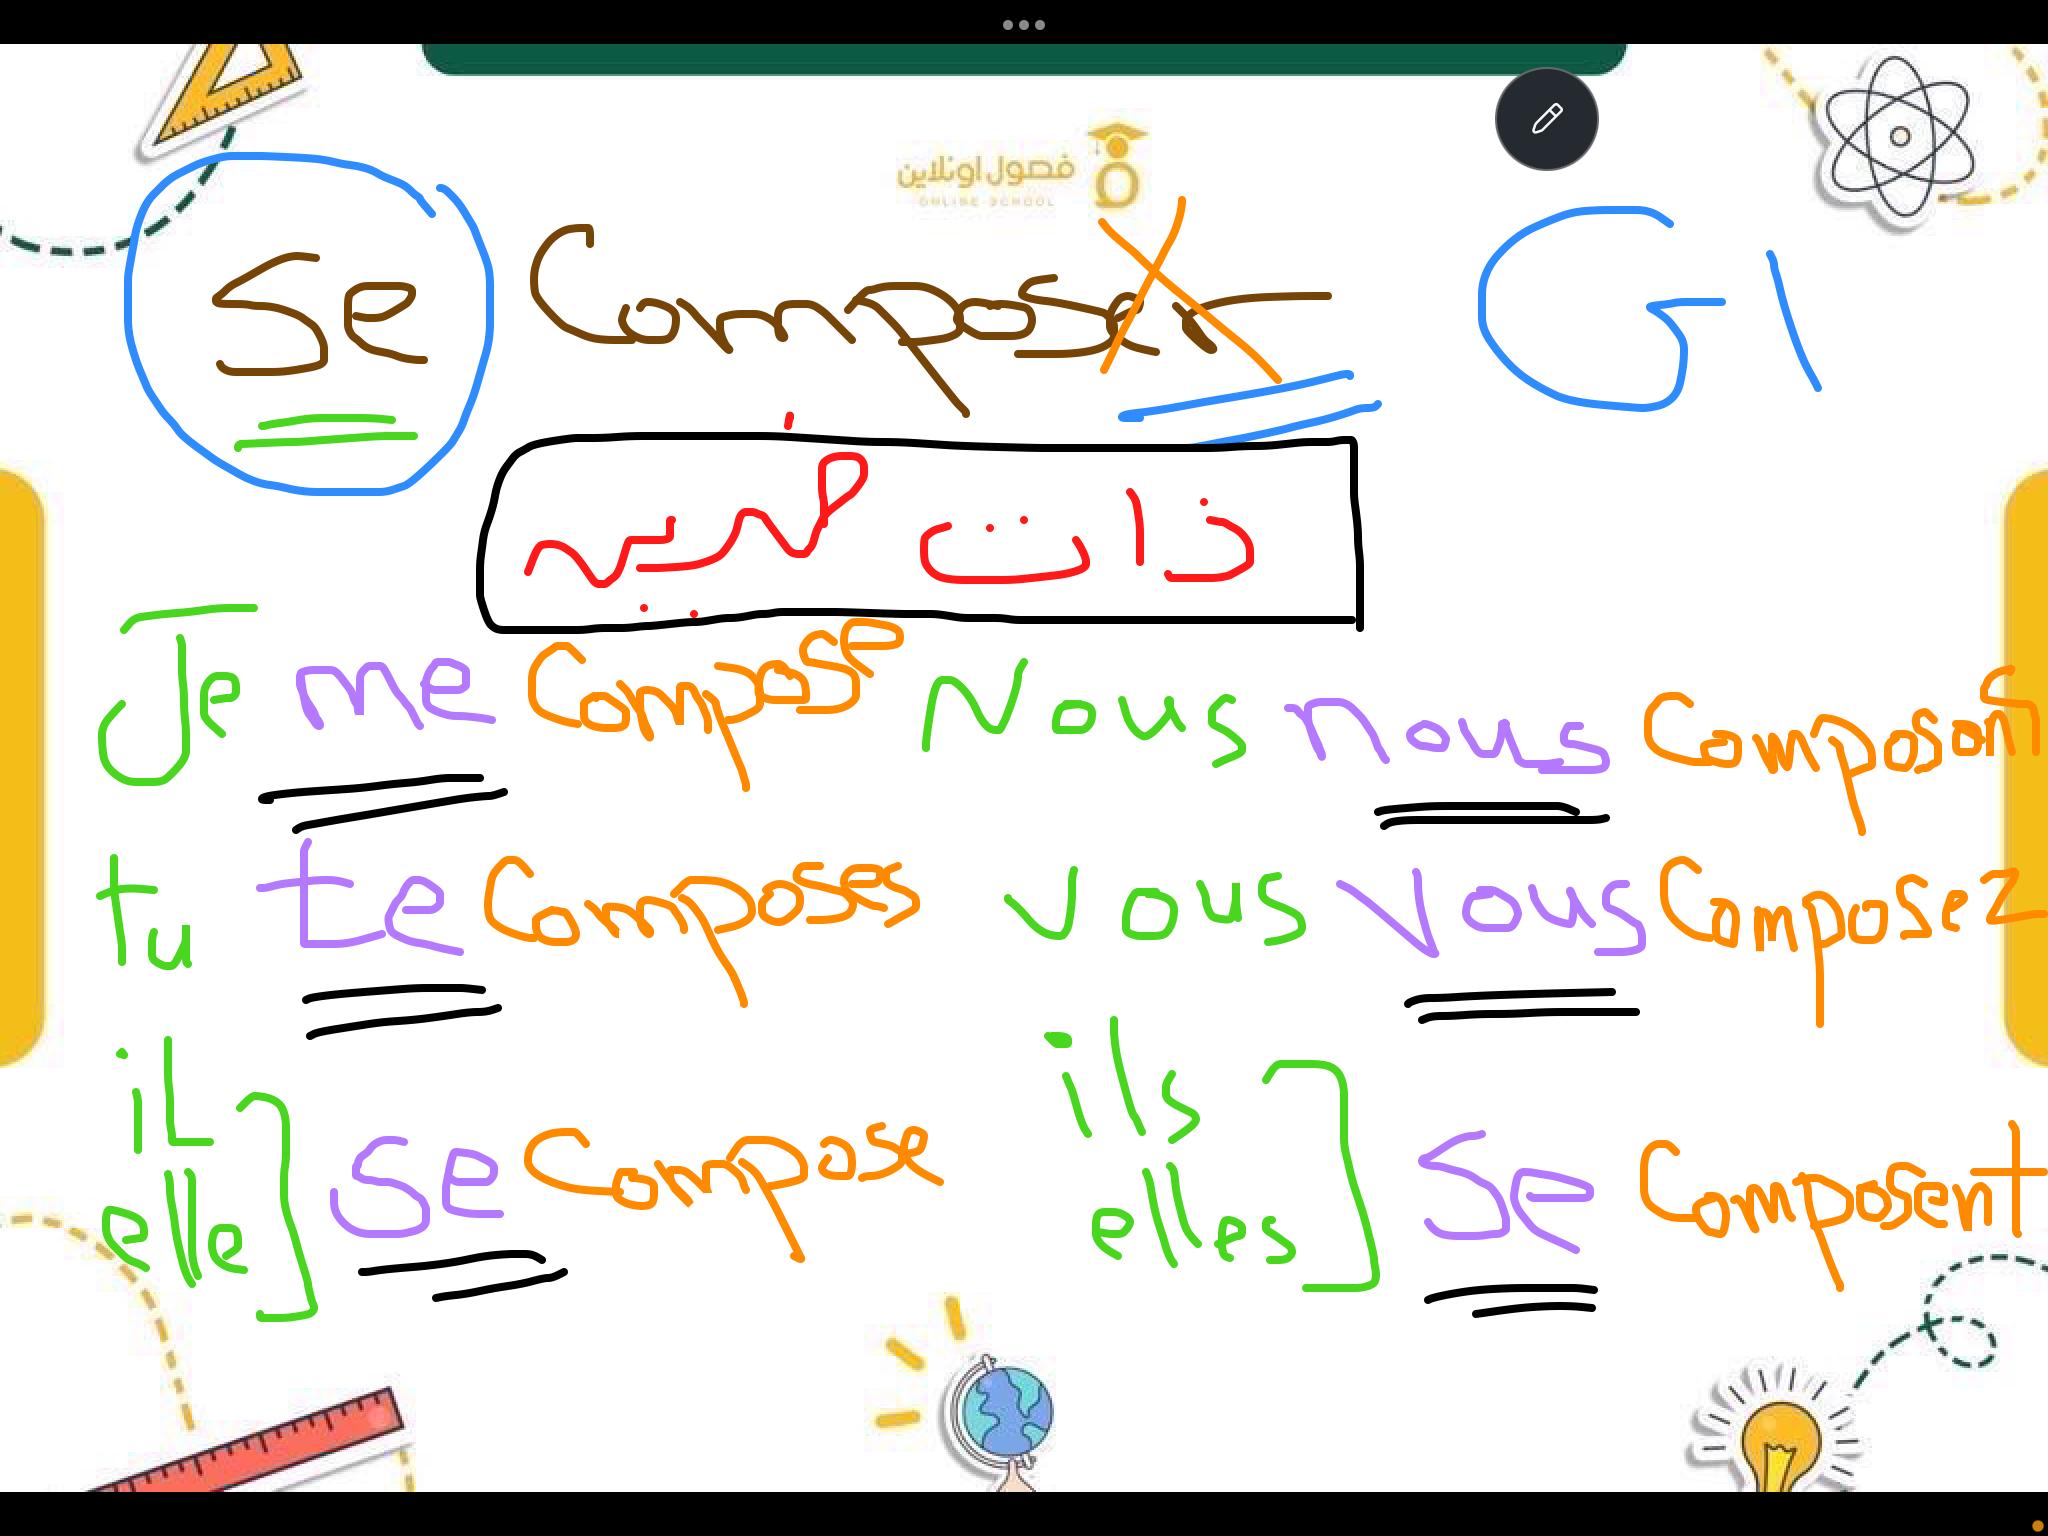 فصول اونلاين
ONLINE SCHOOL
Se Composer G1
ذات ضميريه
Je me Compose Nous nous Composons
tu te Composes Vous Vous Composez
il elle Se Compose ils elles Se Composent